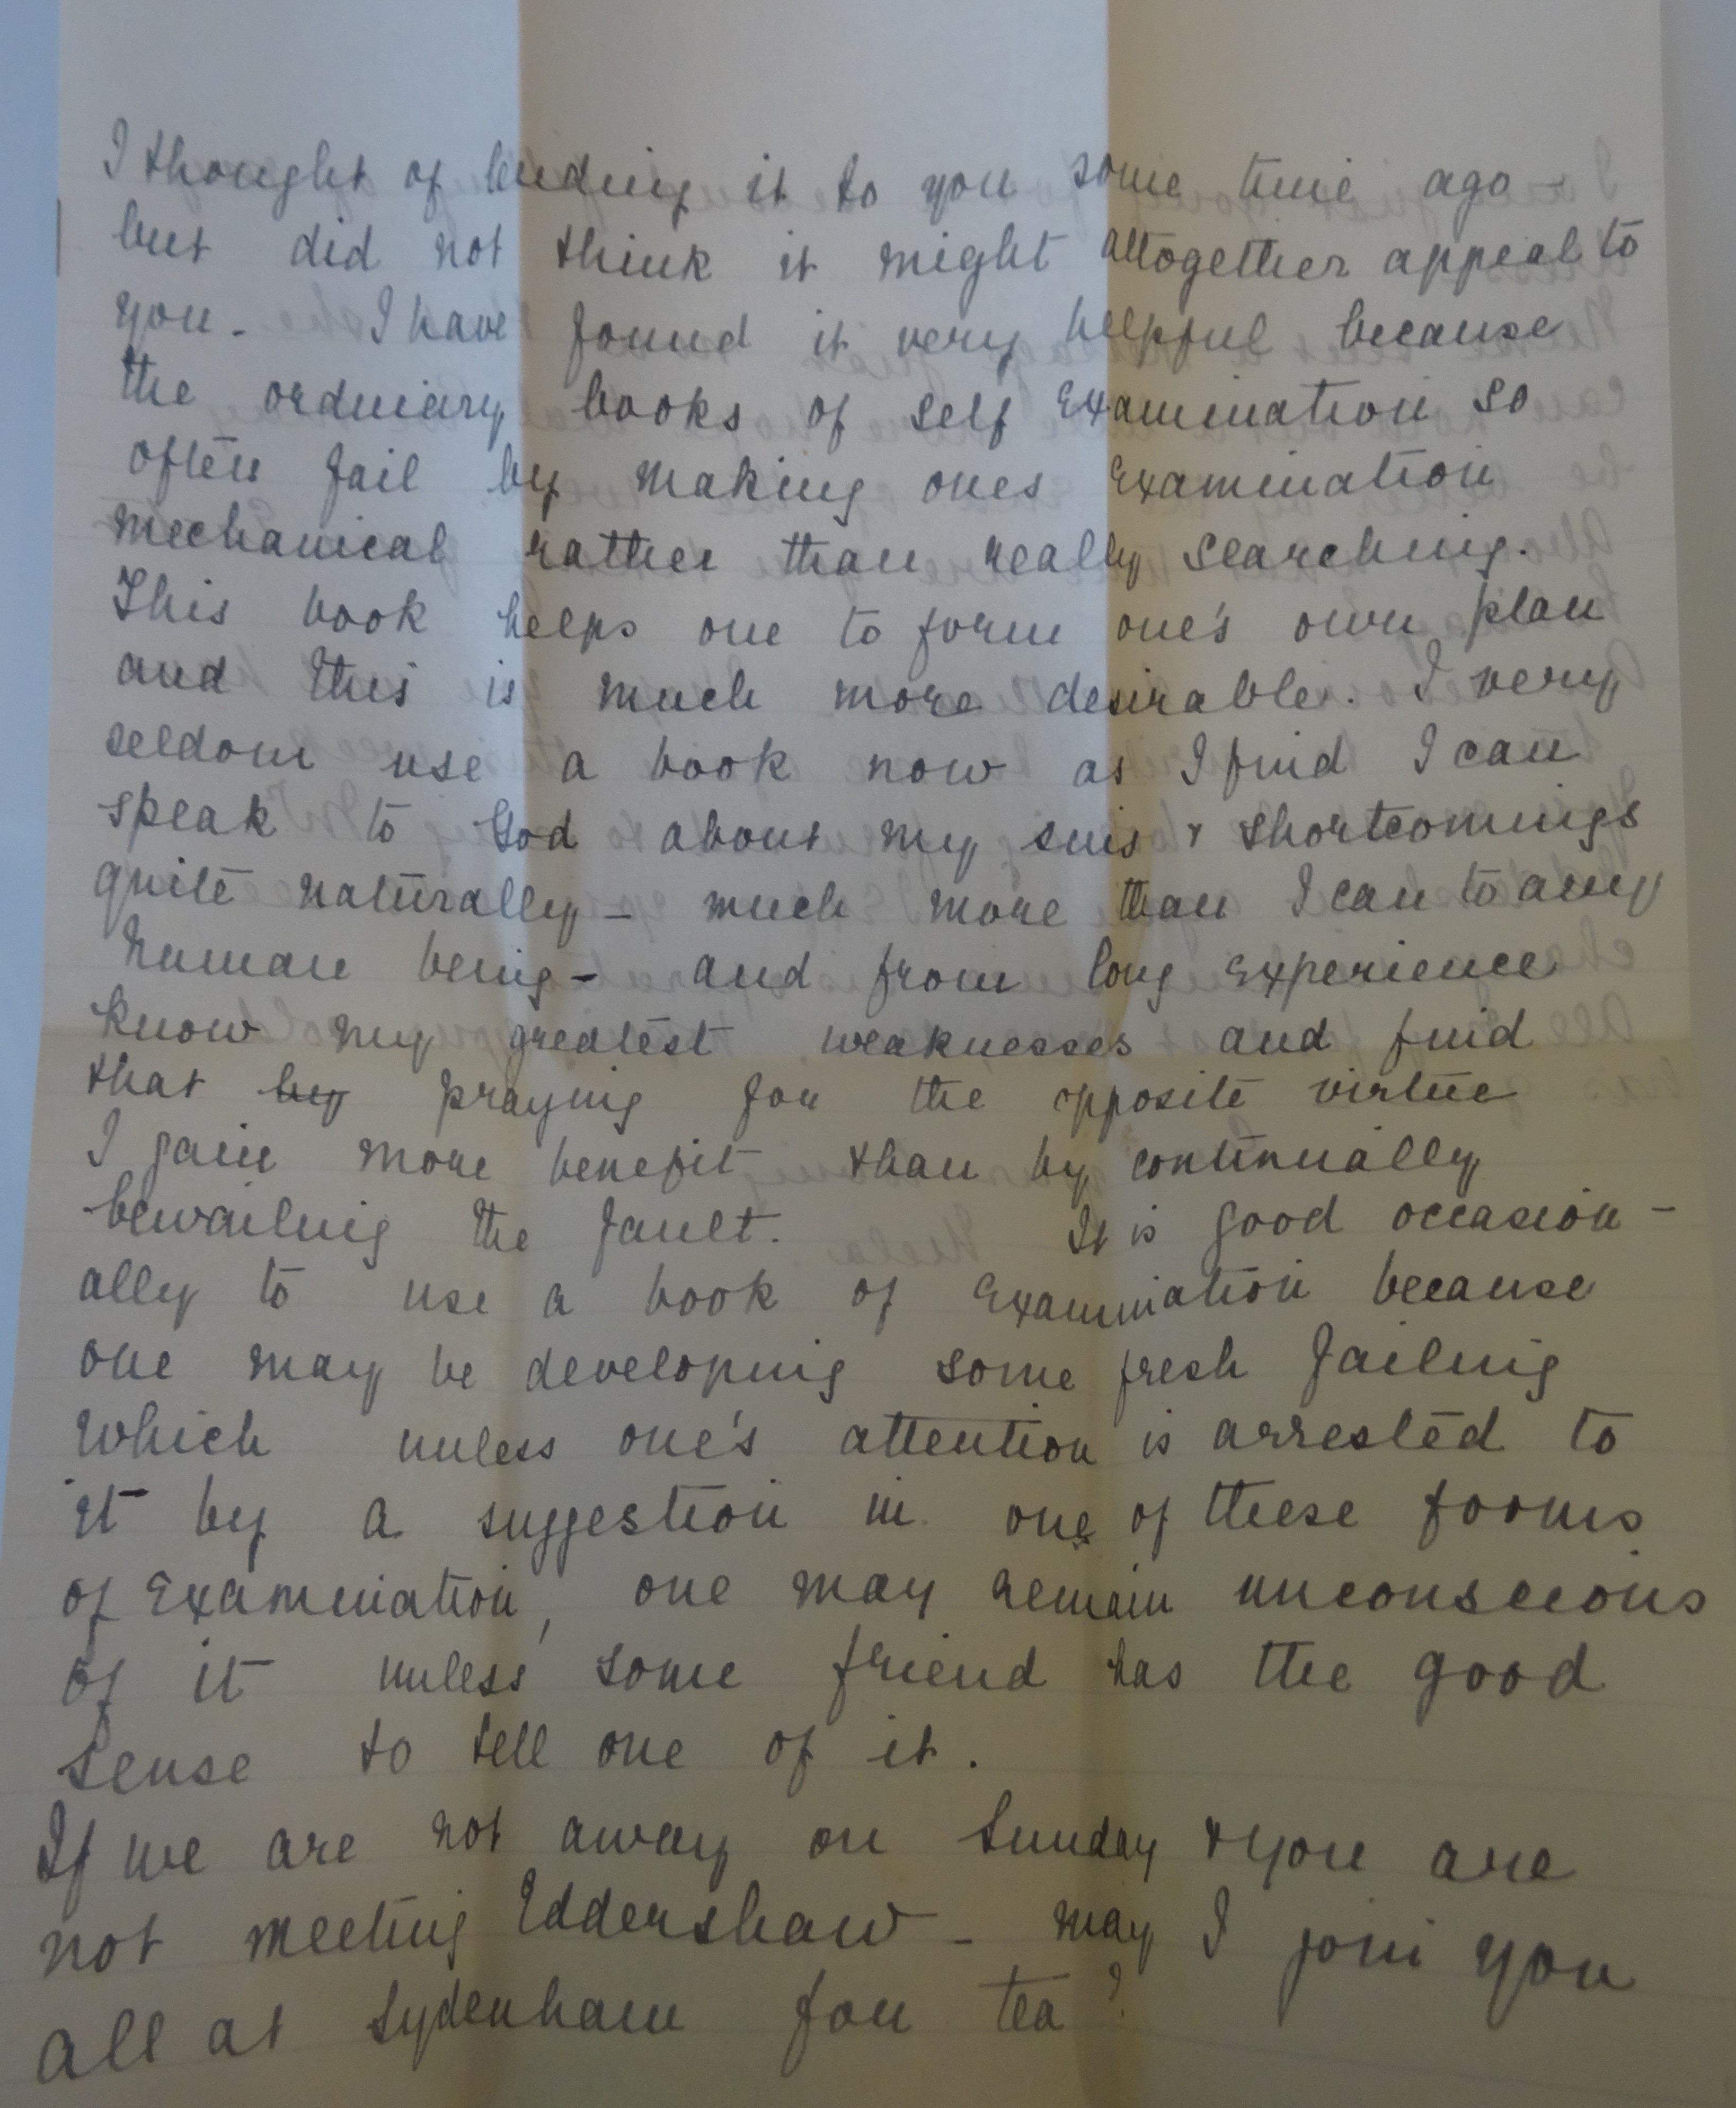 I thought of lending it to you some time ago -
but did not think it might altogether appeal to
you. I have found it very helpful because
the ordinary books of self Examination so
often fail by making ones Examination
mechanical rather than really searching.
This book helps one to form one's own plan
and this is much more desirable. I very
seldom use a book now as I find I can
speak to God about my sins & shortcomings
quite naturally - much more than I can to any
human being - and from long experience
know my greatest weaknesses and find
that by praying for the opposite virtue
I gain more benefit than by continually
bewailing the fault. It is good occasion-
ally to use a book of Examination because
one may be developing some fresh failing
which unless one's attention is arrested to
it by a suggestion in one of these forms
of Examination, one may remain unconscious
of it unless some friend has the good
sense to tell one of it.
If we are not away on Sunday & you are
not meeting Eddershaw - may I join you
all at Sydenham for tea?